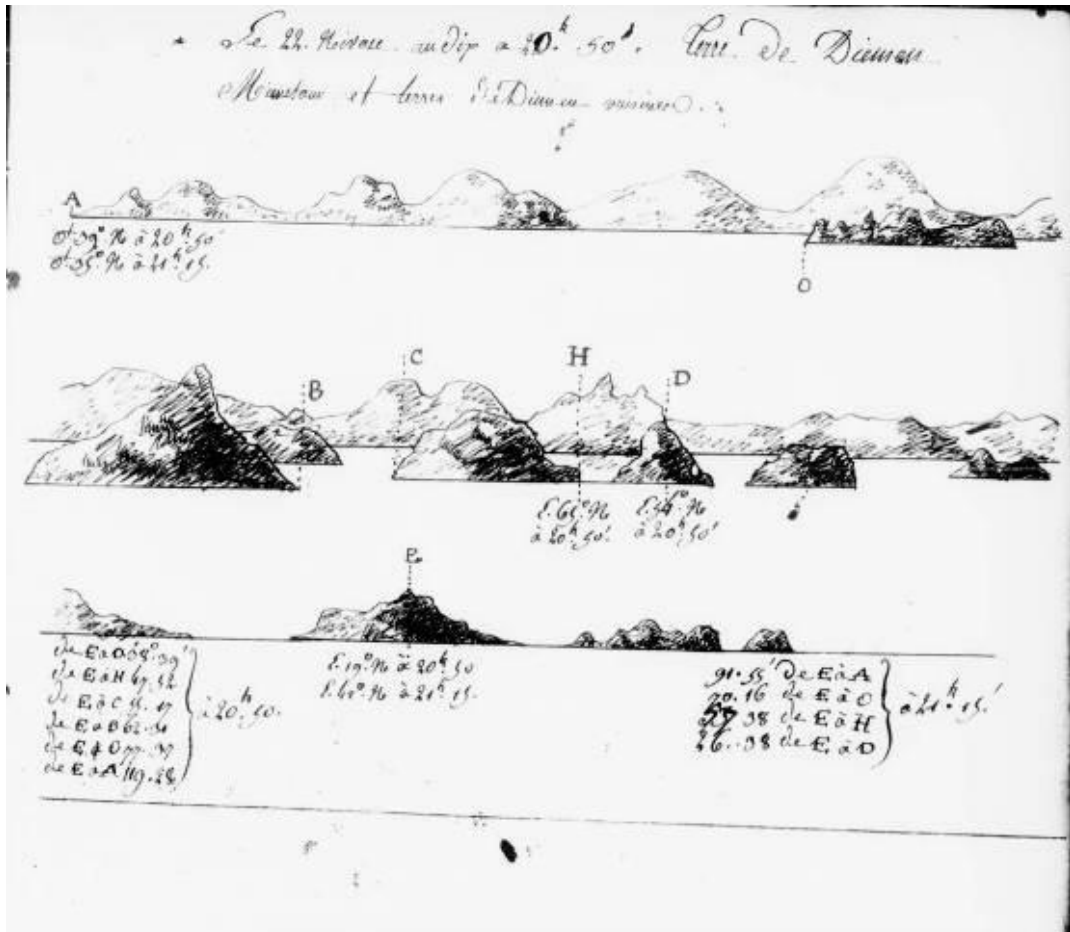 Le 22. Nivose au dix a 20.h 50'. Terre de Diemen
et terres de Diemen
A
O.t 39° N à 20h. 50'
O.t 35° N à 21h. 15.
O
B
C
H
D
E. 65° N
à 20h. 50'
E. 54° N
à 20h. 50'
E
de E à D 38°. 39'
de E à H 47. 52
de E à C 55. 17
de E à B 62. 31
de E à O 77. 37
de E à A 119. 28
à 20h. 50.
E. 19° N à 20h 50
E. 61° N à 21h. 15.
91. 55' de E à A
70. 16 de E à O
38 de E à H
26. 38 de E à D
à 21h. 15'